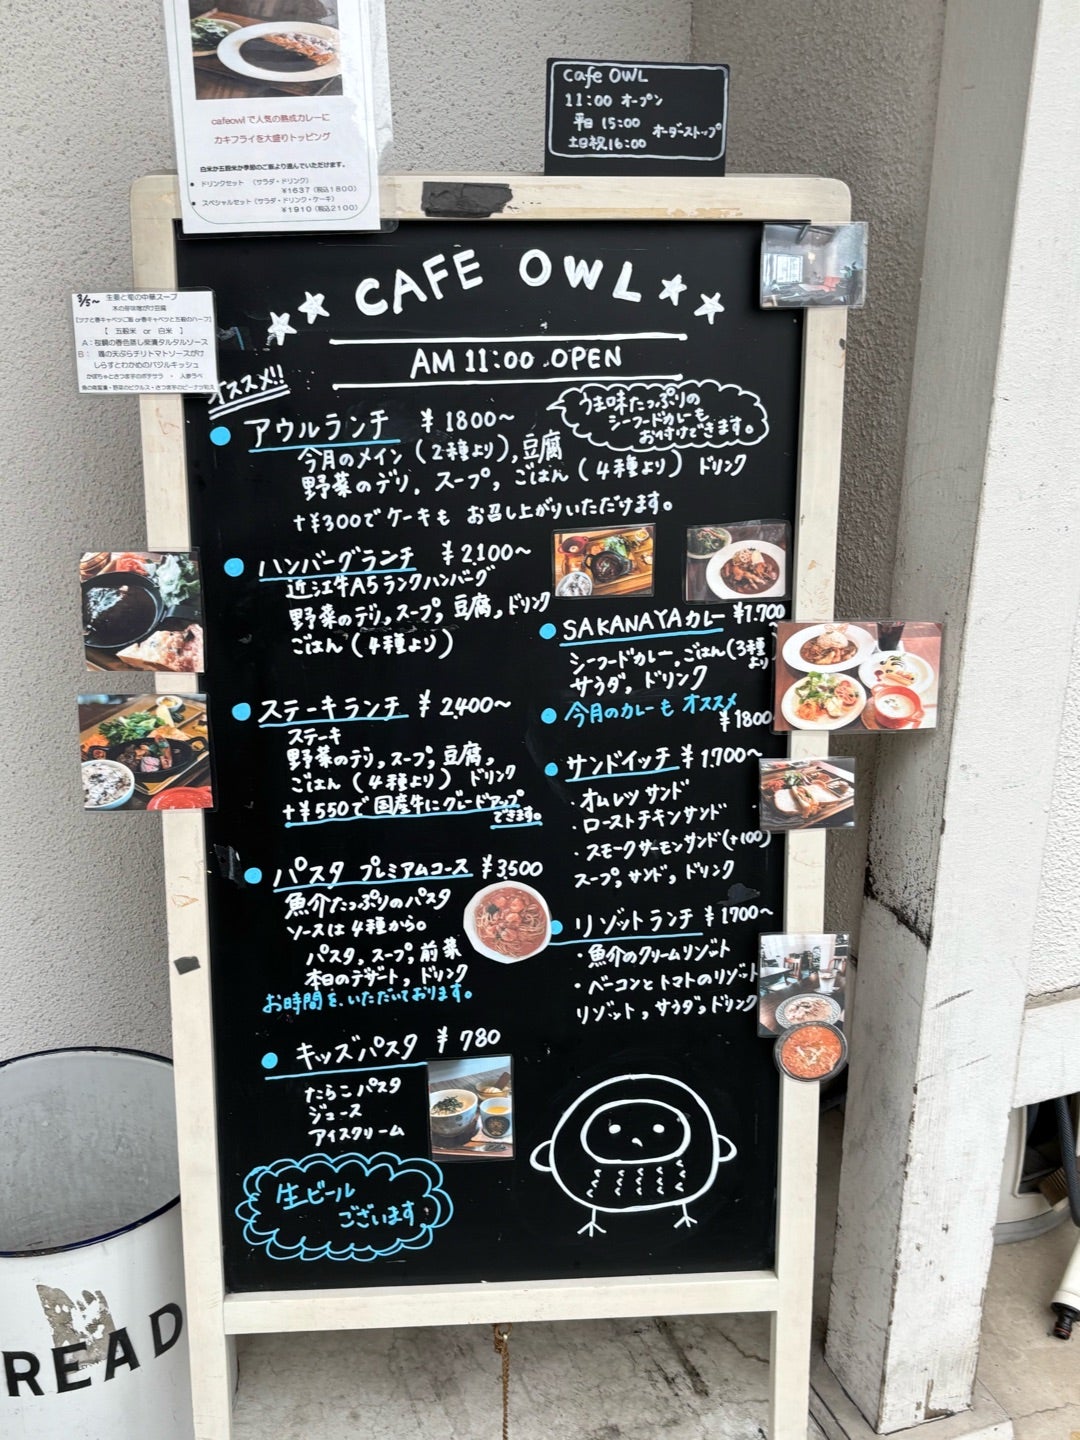 cafeowlで人気の熟成カレーに
カキフライを大盛りトッピング
白米か五穀米か季節のご飯より選んでいただけます。
● ドリンクセット （サラダ・ドリンク）
￥1637（税込1800）
● スペシャルセット（サラダ・ドリンク・ケーキ）
￥1910（税込2100）
Cafe OWL
11:00 オープン
平日 15:00
土日祝16:00
オーダーストップ
3/5〜 生姜と筍の中華スープ
木の芽味噌がけ豆腐
【 五穀米 or 白米 】
しらすとわかめのバジルキッシュ
かぼちゃとさつま芋のポテサラ ・ 人参ラペ
CAFE OWL
AM 11:00 OPEN
オススメ!!
アウルランチ ¥1800〜
うま味たっぷりの
シーフードカレーも
お付けできます。
今月のメイン（2種より）,豆腐
野菜のデリ, スープ, ごはん（4種より） ドリンク
+¥300でケーキも お召し上がりいただけます。
ハンバーグランチ ¥2,100〜
近江牛A5ランクハンバーグ
野菜のデリ,スープ, 豆腐,ドリンク
ごはん（4種より）
ステーキランチ ¥2,400〜
ステーキ
野菜のデリ,スープ, 豆腐,
ごはん（4種より） ドリンク
+¥550で国産牛にグレードアップ
できます。
パスタ プレミアムコース ¥3,500
魚介たっぷりのパスタ
ソースは4種から。
パスタ,スープ,前菜
本日のデザート,ドリンク
お時間を、いただいております。
キッズパスタ ¥780
たらこパスタ
ジュース
アイスクリーム
生ビール
ございます
SAKANAYAカレー ¥1,700
シーフードカレー,ごはん（3種
より）
サラダ, ドリンク
今月のカレーも オススメ
¥1800
サンドイッチ ¥1,700〜
・オムレツサンド
・ローストチキンサンド
・スモークサーモンサンド(+100)
スープ,サンド, ドリンク
リゾットランチ ¥1700〜
・魚介のクリームリゾット
・ベーコンとトマトのリゾット
リゾット, サラダ,ドリンク
READ